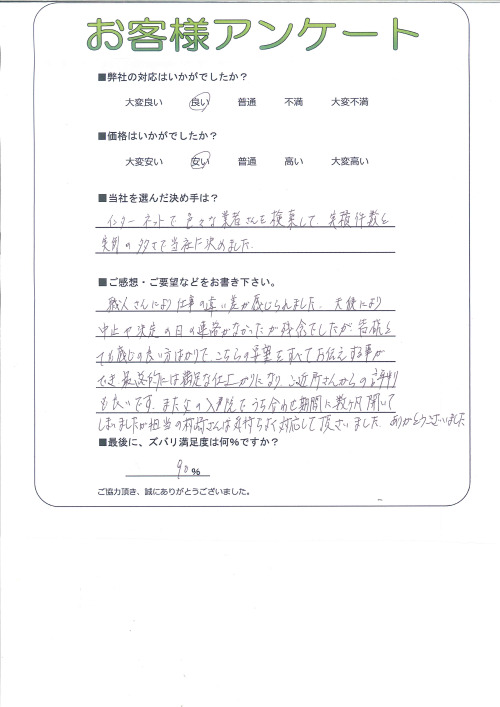 お客様アンケート
■弊社の対応はいかがでしたか?
大変良い 良い 普通 不満 大変不満
■価格はいかがでしたか?
大変安い 安い 普通 高い 大変高い
■当社を選んだ決め手は?
インターネットで色々な業者さんを検索して、実積件数と
実例の多さで当社に決めました。
■ご感想・ご要望などをお書き下さい。
職人さんにより仕事の違い差が感じられました。天候により
中止や決定の日の連絡がなかったが残念でしたが皆様
とても感じの良い方ばかりで、こちらの要望をすべてお伝えする事が
でき最終的には満足な仕上がりになり、ご近所さんからの評判
も良いです。また父の入院でうち合わせ期間に数ヶ月開いて
しまいましたが担当の村崎さんは気持ちよく対応して頂きました。ありがとうございました
■最後に、ズバリ満足度は何%ですか?
90%
ご協力頂き、誠にありがとうございました。